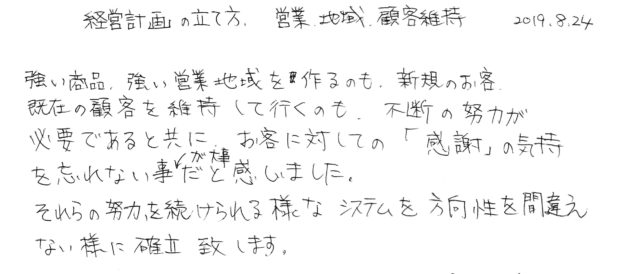 経営計画の立て方、営業、地域、顧客維持 2019.8.24
強い商品、強い営業地域を作るのも、新規のお客、
既在の顧客を維持して行くのも、不断の努力が
必要であると共に、お客に対しての「感謝」の気持
を忘れない事が大事だと感じました。
それらの努力を続けられる様なシステムを方向性を間違え
ない様に確立致します。